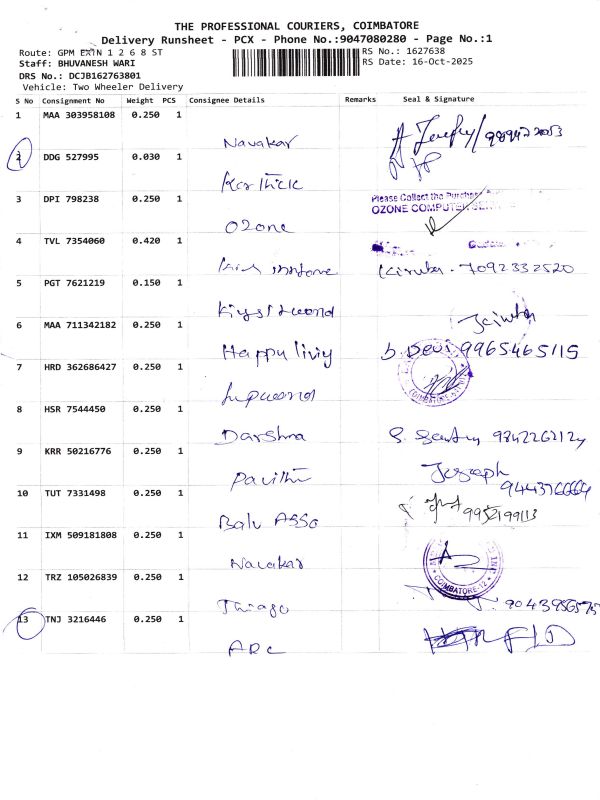 THE PROFESSIONAL COURIERS, COIMBATORE
Delivery Runsheet - PCX - Phone No.:9047080280 - Page No.:1
Route: GPM EXTN 1 2 6 8 ST RS No.: 1627638
Staff: BHUVANESH WARI RS Date: 16-Oct-2025
DRS No.: DCJB162763801
Vehicle: Two Wheeler Delivery
S No Consignment No Weight PCS Consignee Details Remarks Seal & Signature
1 MAA 303958108 0.250 1
Navakar
2 DDG 527995 0.030 1
Karthick
3 DPI 798238 0.250 1
Please Collect the Purchase
OZONE COMPUTER
Ozone
4 TVL 7354060 0.420 1
Kiruba - 7092332520
5 PGT 7621219 0.150 1
6 MAA 711342182 0.250 1
Happy living b. Devi 9965465115
7 HRD 362686427 0.250 1
8 HSR 7544450 0.250 1
Darshna
9 KRR 50216776 0.250 1
Pavithi
10 TUT 7331498 0.250 1
Balu Asso 9952199113
11 IXM 509181808 0.250 1
Navakar
COIMBATORE-12
12 TRZ 105026839 0.250 1
Thiago
13 TNJ 3216446 0.250 1
ARC